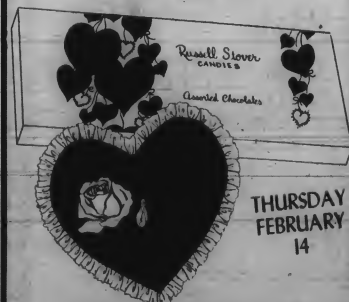 Russell Stover
CANDIES
Assorted Chocolates
THURSDAY
FEBRUARY
14